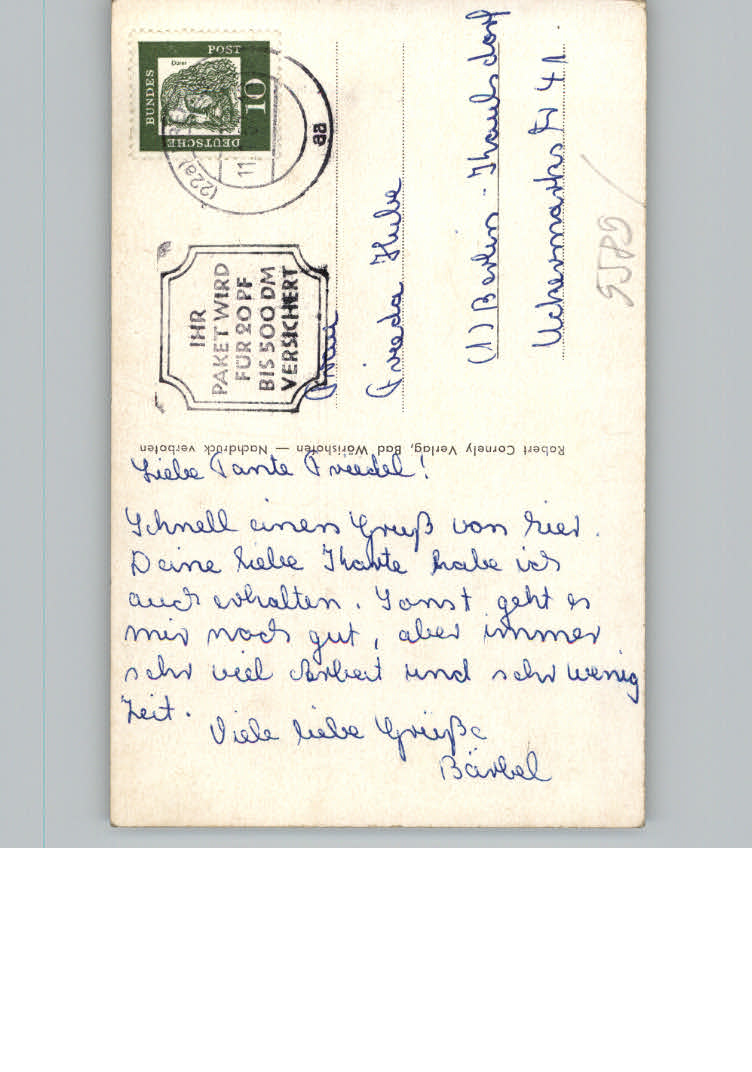 DEUTSCHE
BUNDES
POST
10
Dürer
(22a)
11
aa
IHR
PAKET WIRD
FÜR 20 PF
BIS 500 DM
VERSICHERT
Frau
Frieda Hube
(1) Berlin - Kaulsdorf
Uckermarkstr 41.
5580
Robert Cornely Verlag, Bad Wörishofen — Nachdruck verboten
Liebe Tante Friedel!
Schnell einen Gruß von hier.
Deine liebe Karte habe ich
auch erhalten. Sonst geht es
mir noch gut, aber immer
sehr viel Arbeit und sehr wenig
Zeit.
Viele liebe Grüße
Bärbel